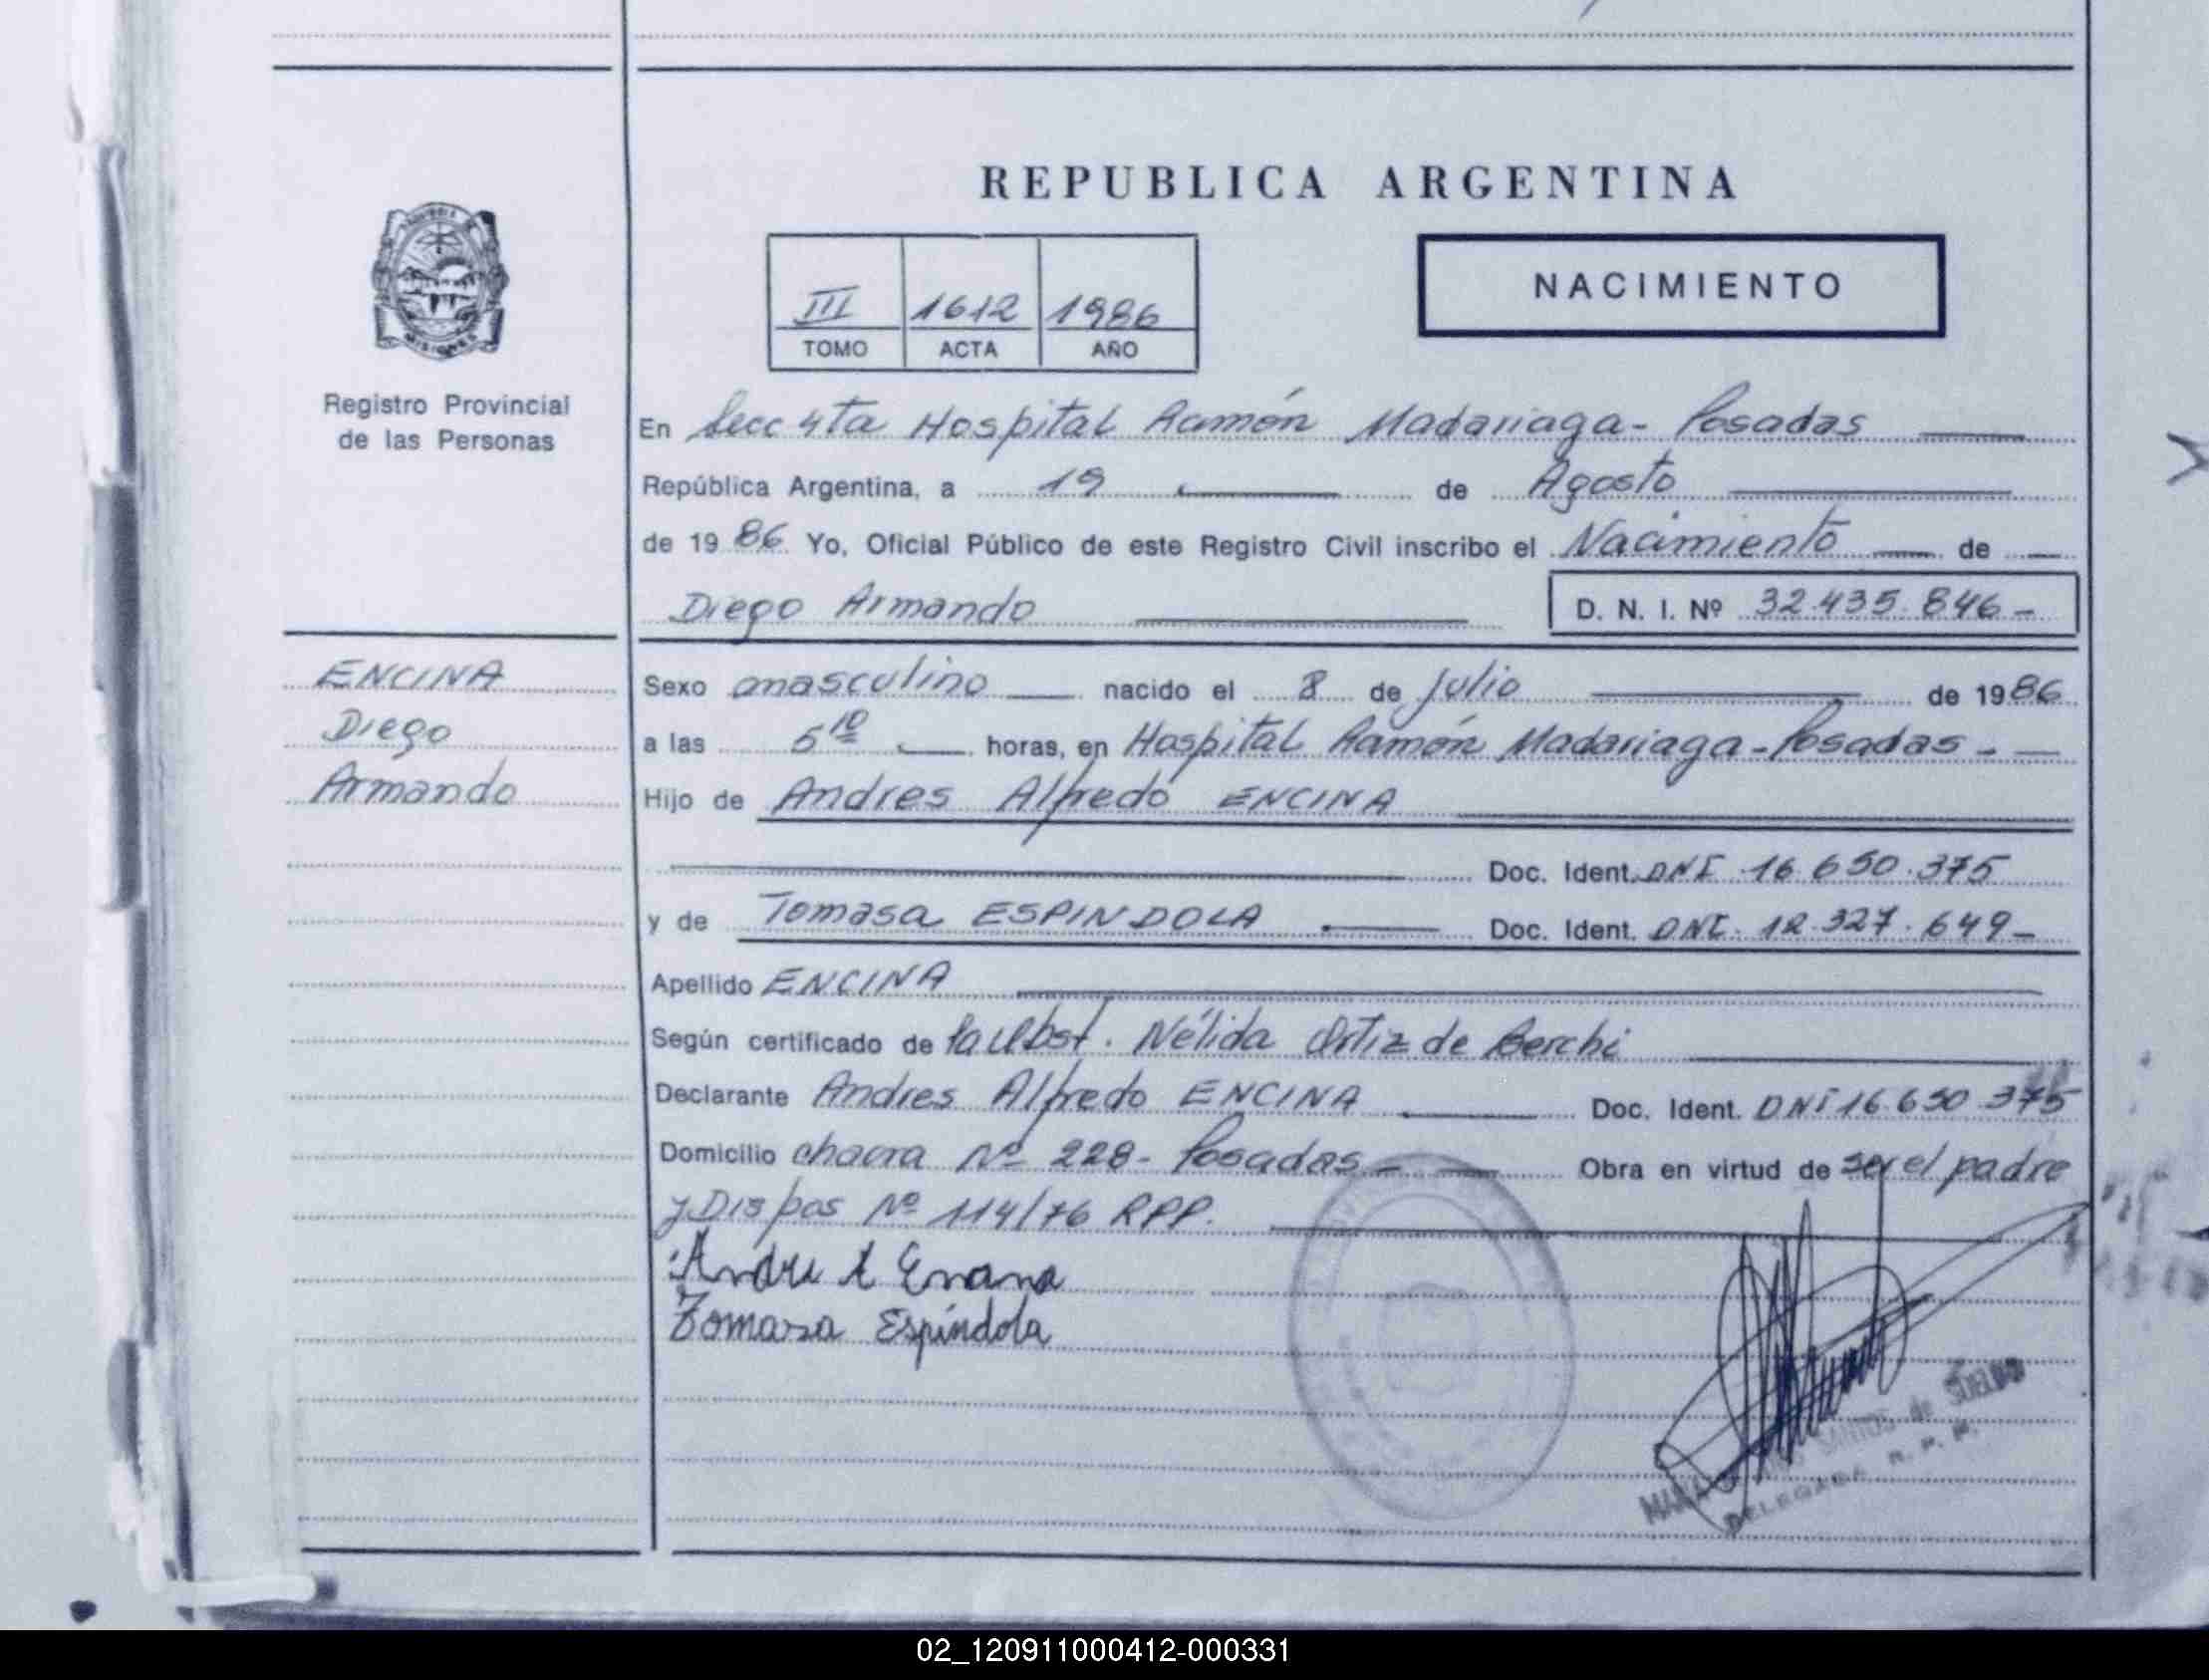 REPUBLICA ARGENTINA
III 1612 1986
TOMO ACTA AÑO
NACIMIENTO
MISIONES
Registro Provincial
de las Personas
En Secc 4ta Hospital Ramón Madariaga - Posadas
República Argentina, a 19 de Agosto
de 1986 Yo, Oficial Público de este Registro Civil inscribo el Nacimiento de
Diego Armando D. N. I. Nº 32.435.846-
ENCINA
Diego
Armando
Sexo masculino nacido el 8 de Julio de 1986
a las 5 10 horas, en Hospital Ramón Madariaga - Posadas -
Hijo de Andres Alfredo ENCINA
Doc. Ident. DNI 16.650.375
y de Tomasa ESPINDOLA Doc. Ident. DNI. 12.327.649-
Apellido ENCINA
Según certificado de la Obst. Nélida Ortiz de Berchi
Declarante Andres Alfredo ENCINA Doc. Ident. DNI 16.650.375
Domicilio chacra Nº 228 - Posadas - Obra en virtud de ser el padre
y Dispos Nº 114/76 RPP.
Tomasa Espíndola
SANTOS de
DELEGADA R. P. P.
02_120911000412-000331